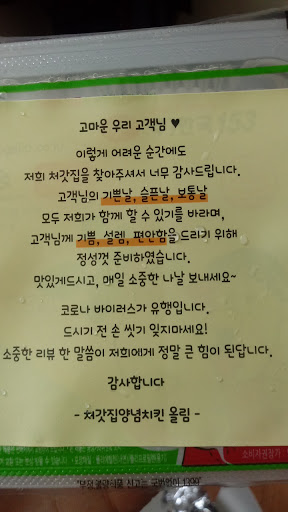 고마운 우리 고객님 ♥
이렇게 어려운 순간에도
저희 처갓집을 찾아주셔서 너무 감사드립니다.
고객님의 기쁜날, 슬픈날, 보통날
모두 저희가 함께 할 수 있기를 바라며,
고객님께 기쁨, 설렘, 편안함을 드리기 위해
정성껏 준비하였습니다.
맛있게드시고, 매일 소중한 나날 보내세요~
코로나 바이러스가 유행입니다.
드시기 전 손 씻기 잊지마세요!
소중한 리뷰 한 말씀이 저희에게 정말 큰 힘이 된답니다.
감사합니다
- 처갓집양념치킨 올림 -
"부정·불량식품 신고는 국번없이 1399"